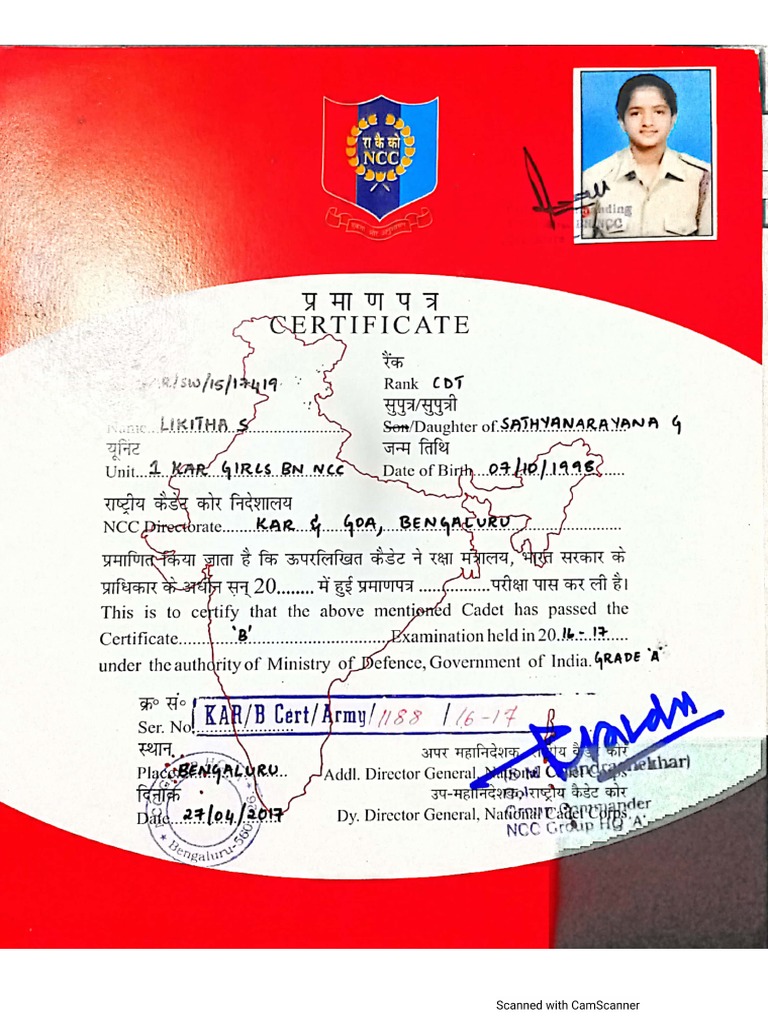 रा कै को
NCC
एकता और अनुशासन
प्रमाणपत्र
CERTIFICATE
रैंक
R/SW/15/17419
Rank CDT
सुपुत्र/सुपुत्री
Name LIKITHA S
Son/Daughter of SATHYANARAYANA G
यूनिट
जन्म तिथि
Unit 1 KAR GIRLS BN NCC
Date of Birth 07/10/1996
राष्ट्रीय कैडेट कोर निदेशालय
NCC Directorate KAR & GOA, BENGALURU
प्रमाणित किया जाता है कि ऊपरलिखित कैडेट ने रक्षा मंत्रालय, भारत सरकार के
प्राधिकार के अधीन सन् 20........ में हुई प्रमाणपत्र ................परीक्षा पास कर ली है।
This is to certify that the above mentioned Cadet has passed the
Certificate 'B' Examination held in 2016-17
under the authority of Ministry of Defence, Government of India. GRADE 'A'
क्र० सं०
Ser. No. KAR/B Cert/Army/1188/16-17
स्थान
अपर महानिदेशक, राष्ट्रीय कैडेट कोर
Place BENGALURU
Addl. Director General, National Cadet Corps
दिनांक
उप-महानिदेशक, राष्ट्रीय कैडेट कोर
Date 27/04/2017
Dy. Director General, National Cadet Corps
Group Commander
NCC Group HQ 'A'
Bengaluru-560
Scanned with CamScanner